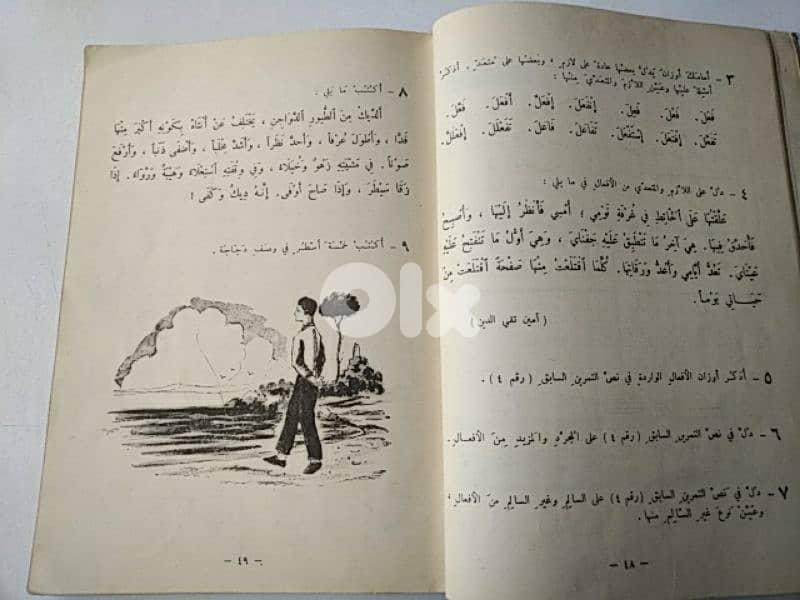 ٣ - أمامك أوزان يدل بعضها عادة على لازم ، وبعضها على متعد . أذكر
أمثلة عليها وعين اللازم والمتعدي منها :
فَعَلَ . فَعُلَ . فَعِلَ . إنْفَعَلَ . إفْعَلَّ . أفْعَلَ . فَعَّلَ .
تَفَعَّلَ . إفْتَعَلَ . إسْتَفْعَلَ . تَفَاعَلَ . فَاعَلَ . تَفَعْلَلَ . إفْعَلَلَّ .
٤ - دل على اللازم والمتعدي من الأفعال في ما يلي :
عَلَّقْتُهَا عَلَى الحَائِطِ فِي غُرْفَةِ نَوْمِي ؛ أُمْسِي فَأَنْظُرُ إِلَيْهَا ، وَأُصْبِحُ
فَأُحَدِّقُ فِيهَا . هِيَ آخِرُ مَا تَنْطَبِقُ عَلَيْهِ جَفْنَايَ ، وَهِيَ أَوَّلُ مَا تَتَفَتَّحُ عَلَيْهِ
عَيْنَايَ . تَعُدُّ أَيَّامِي وَأَعُدُّ وَرَقَاتِهَا . كُلَّمَا اقْتَلَعْتُ مِنْهَا صَفْحَةً اقْتَلَعَتْ مِنْ
حَيَاتِي يَوْماً .
( أمين تقي الدين )
٥ - أذكر أوزان الأفعال الواردة في نص التمرين السابق ( رقم ٤ ) .
٦ - دل في نص التمرين السابق ( رقم ٤ ) على المجرد والمزيد من الأفعال .
٧ - دل في نص التمرين السابق ( رقم ٤ ) على السالم وغير السالم من الأفعال ،
وعين نوع غير السالم منها .
- ٤٨ -
٨ - أكتب ما يلي :
الدِّيكُ مِنَ الطُّيُورِ الدَّوَاجِنِ ، يَخْتَلِفُ عَنْ أُنْثَاهُ بِكَوْنِهِ أَكْبَرَ مِنْهَا
قَدًّا ، وَأَطْوَلَ عُرْفاً ، وَأَحَدَّ نَظَراً ، وَأَشَدَّ مِخْلَباً ، وَأَضْفَى ذَنَباً ، وَأَرْفَعَ
صَوْتاً . فِي مِشْيَتِهِ زَهْوٌ وَخُيَلَاءُ ، وَفِي وَقْفَتِهِ اسْتِعْلَاءٌ وَهَيْبَةٌ وَرُوَاءٌ . إِذَا
زَقَا سَيْطَرَ ، وَإِذَا صَاحَ أَوْفَى . إِنَّهُ دِيكٌ وَكَفَى !
٩ - أكتب خمسة أسطر في وصف دجاجة .
- ٤٩ -
olx